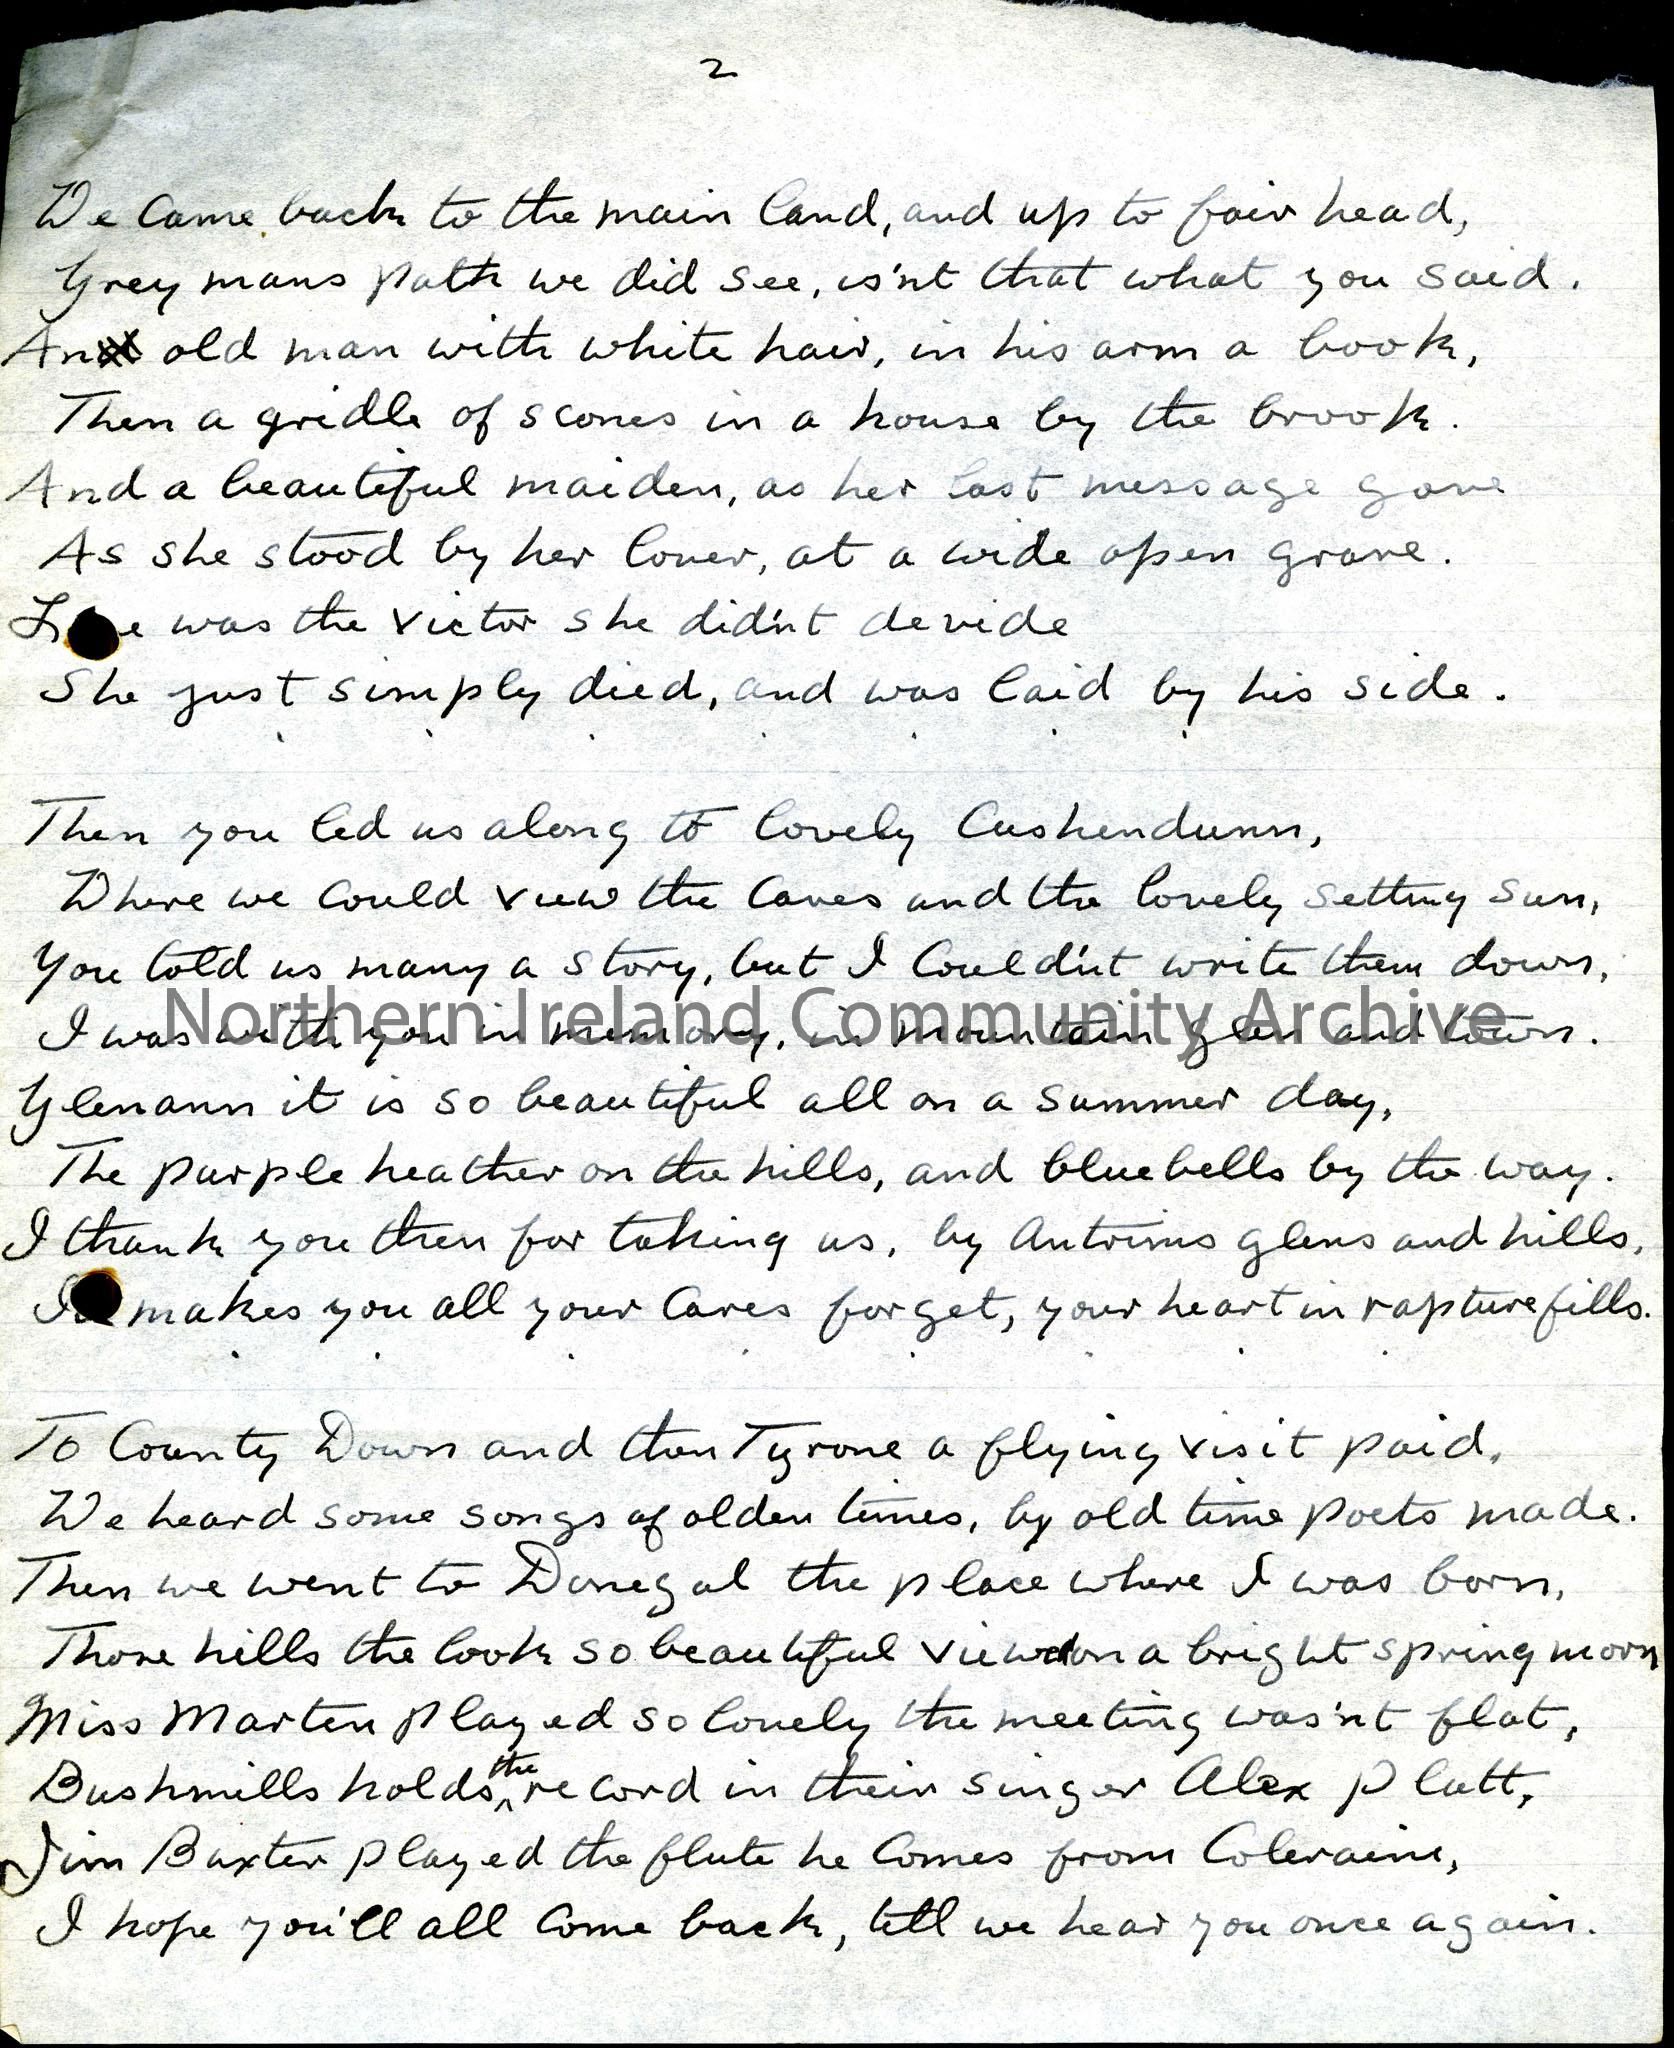 2
We came back to the main land, and up to fair head,
Grey mans path we did see, is'nt that what you said.
An old man with white hair, in his arm a book,
Then a gridle of scones in a house by the brook.
And a beautiful maiden, as her last message gave
As she stood by her lover, at a wide open grave.
L e was the victor she did'nt devide
She just simply died, and was laid by his side.
Then you led us along to lovely Cushendunn,
Where we could view the Caves and the lovely setting sun,
You told us many a story, but I could'nt write them down,
Northern Ireland Community Archive
I was with you in memory, in mountain glen and town.
Glenann it is so beautiful all on a summer day,
The purple heather on the hills, and bluebells by the way.
I thank you then for taking us, by Antrims glens and hills,
I makes you all your Cares forget, your heart in rapture fills.
To County Down and then Tyrone a flying visit paid,
We heard some songs of olden times, by old time poets made.
Then we went to Donegal the place where I was born,
Those hills the look so beautiful viewed on a bright spring morn
Miss Marten played so lovely the meeting was'nt flat,
Bushmills holds the record in their singer Alex Platt,
Jim Baxter played the flute he comes from Coleraine,
I hope you'll all come back, till we hear you once again.